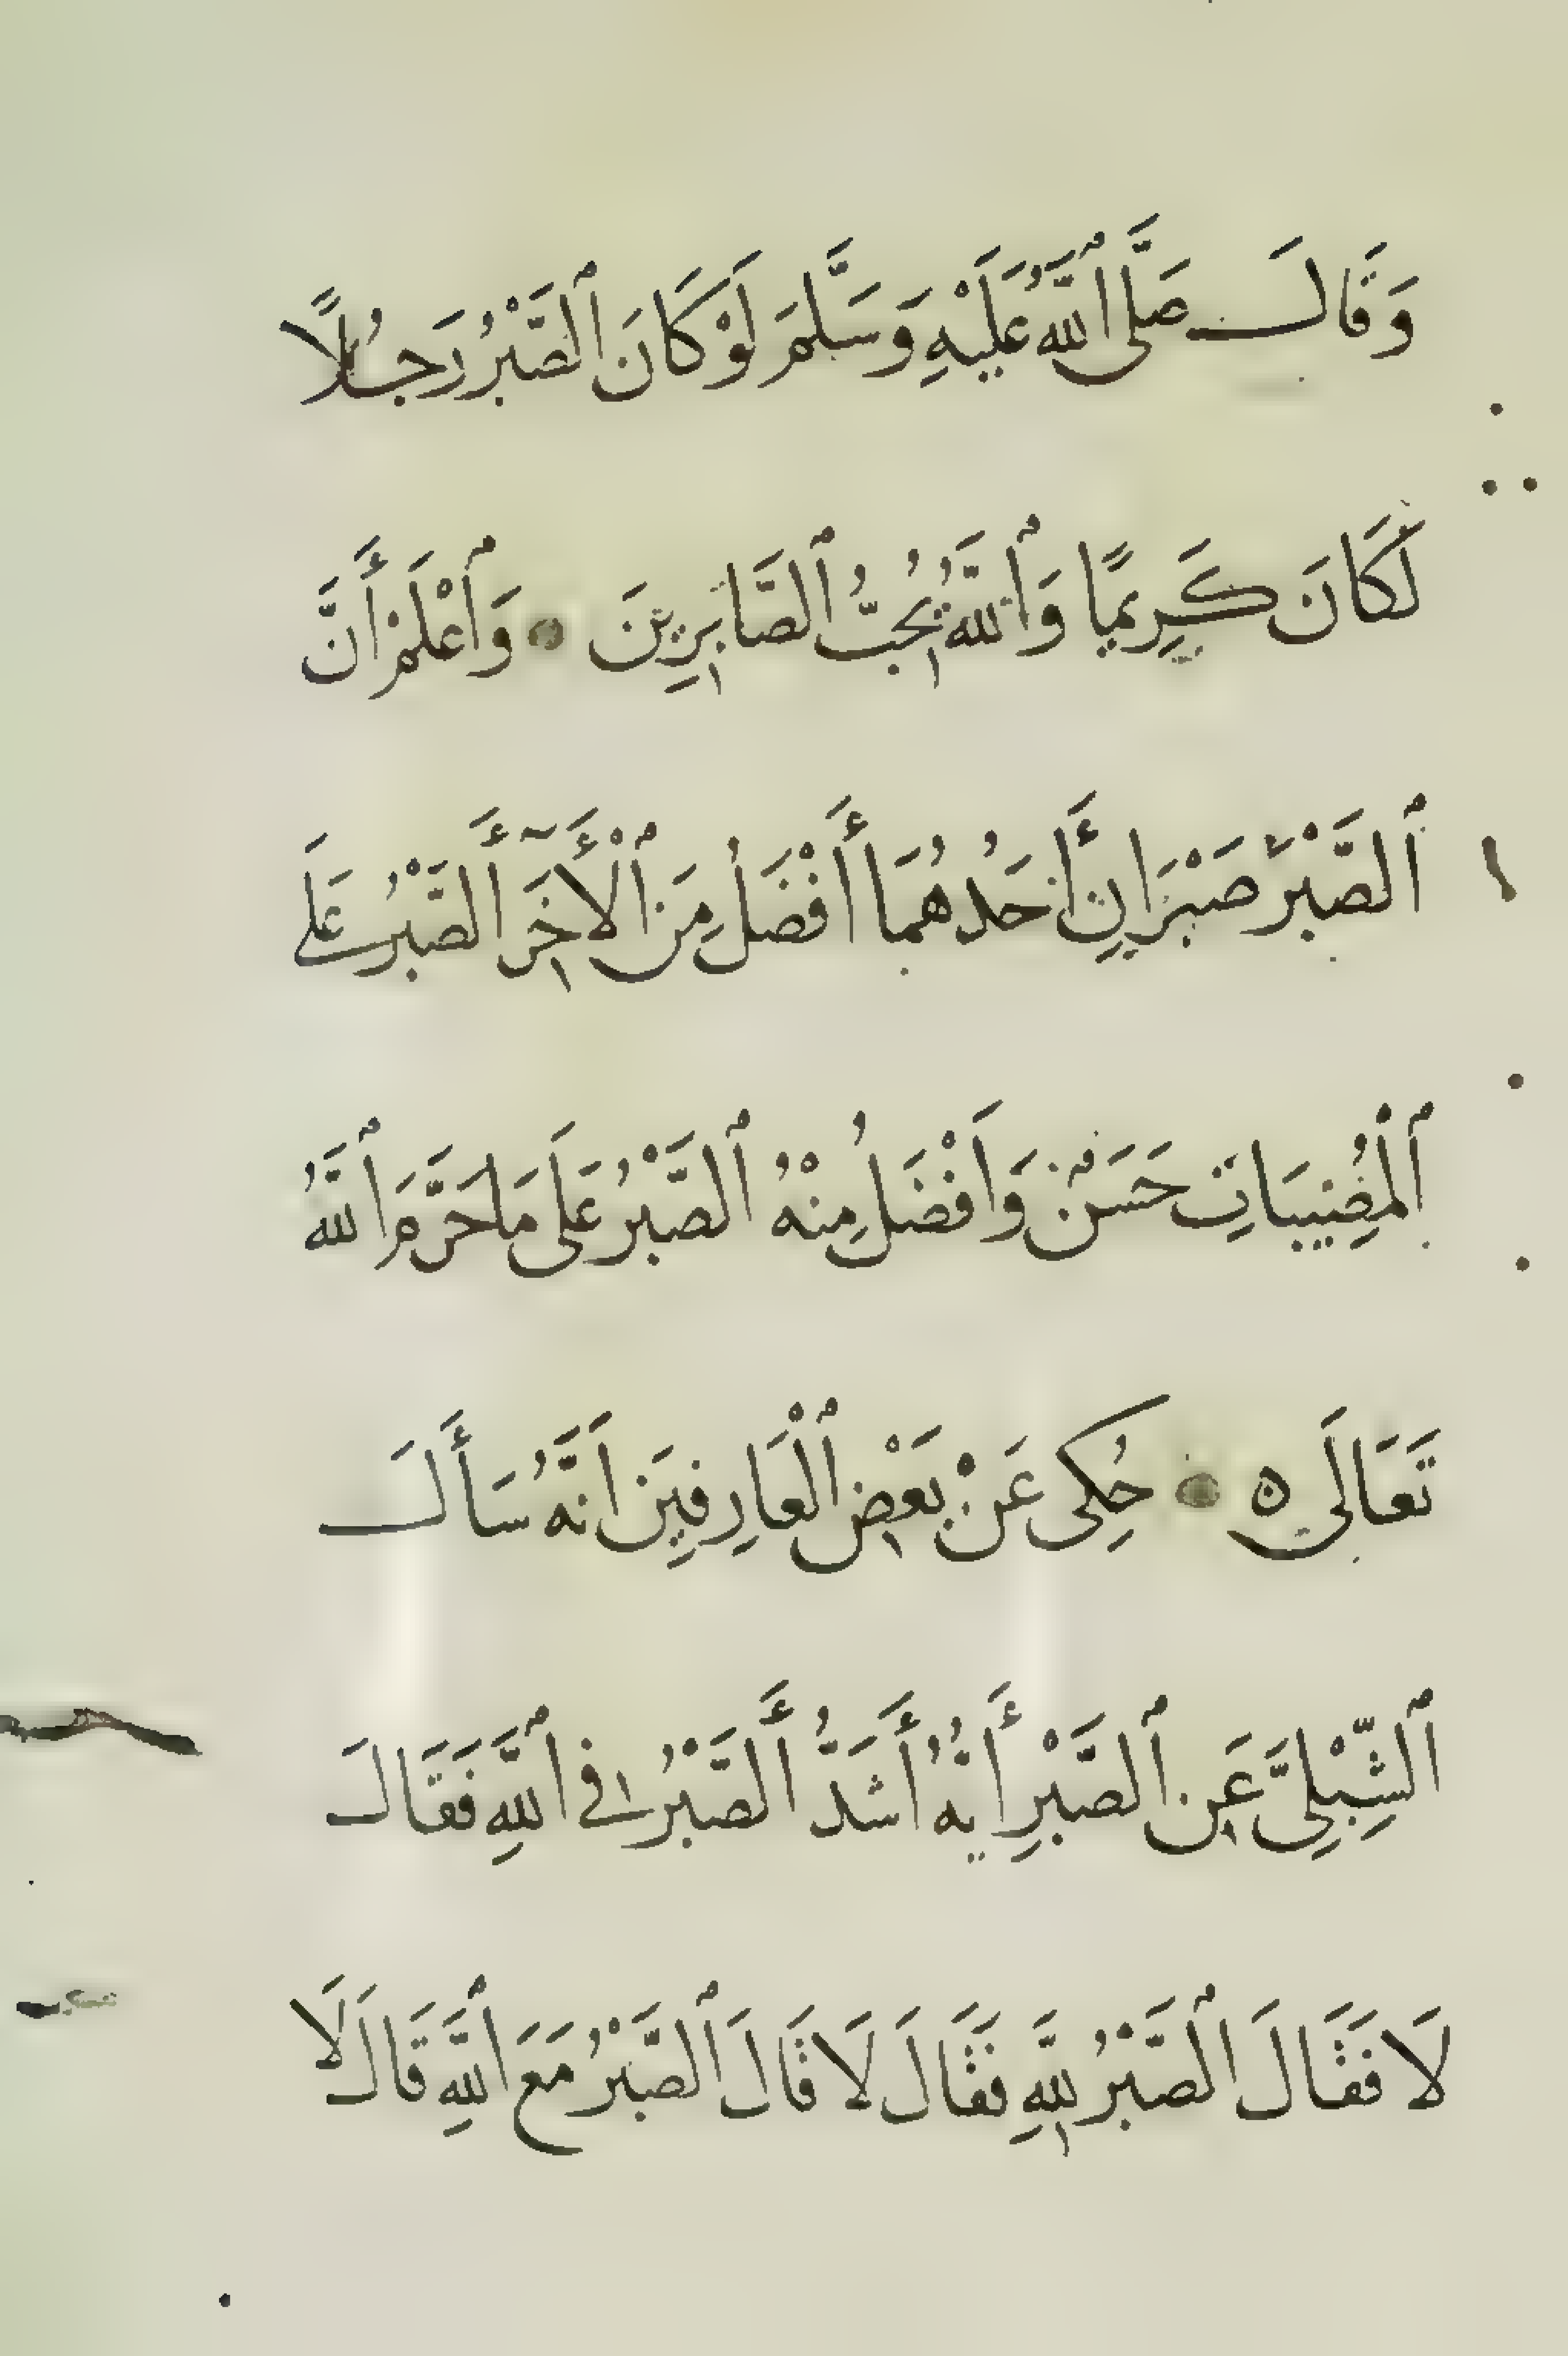 وَقَالَ صَلَّى ٱللَّهُ عَلَيْهِ وَسَلَّمَ لَوْ كَانَ ٱلصَّبْرُ رَجُلًا
لَكَانَ كَرِيمًا وَٱللَّهُ يُحِبُّ ٱلصَّابِرِينَ • وَٱعْلَمْ أَنَّ
ٱلصَّبْرَ صَبْرَانِ أَحَدُهُمَا أَفْضَلُ مِنَ ٱلْأَخَرِ أَلصَّبْرُ عَلَى
ٱلْمُصِيبَاتِ حَسَنٌ وَاَفْضَلُ مِنْهُ ٱلصَّبْرُ عَلَى مَا حَرَّمَ ٱللَّهُ
تَعَالَى ه • حُكِىَ عَنْ بَعْضِ ٱلْعَارِفِينَ اَنَّهُ سَأَلَ
ٱلشِّبْلِىَّ عَنِ ٱلصَّبْرِ أَيُّهُ أَشَدُّ أَلصَّبْرُ فِى ٱللَّهِ فَقَالَ
لَا فَقَالَ ٱلصَّبْرُ لِلَّهِ فَقَالَ لَا قَالَ ٱلصَّبْرُ مَعَ ٱللَّهِ قَالَ لَا